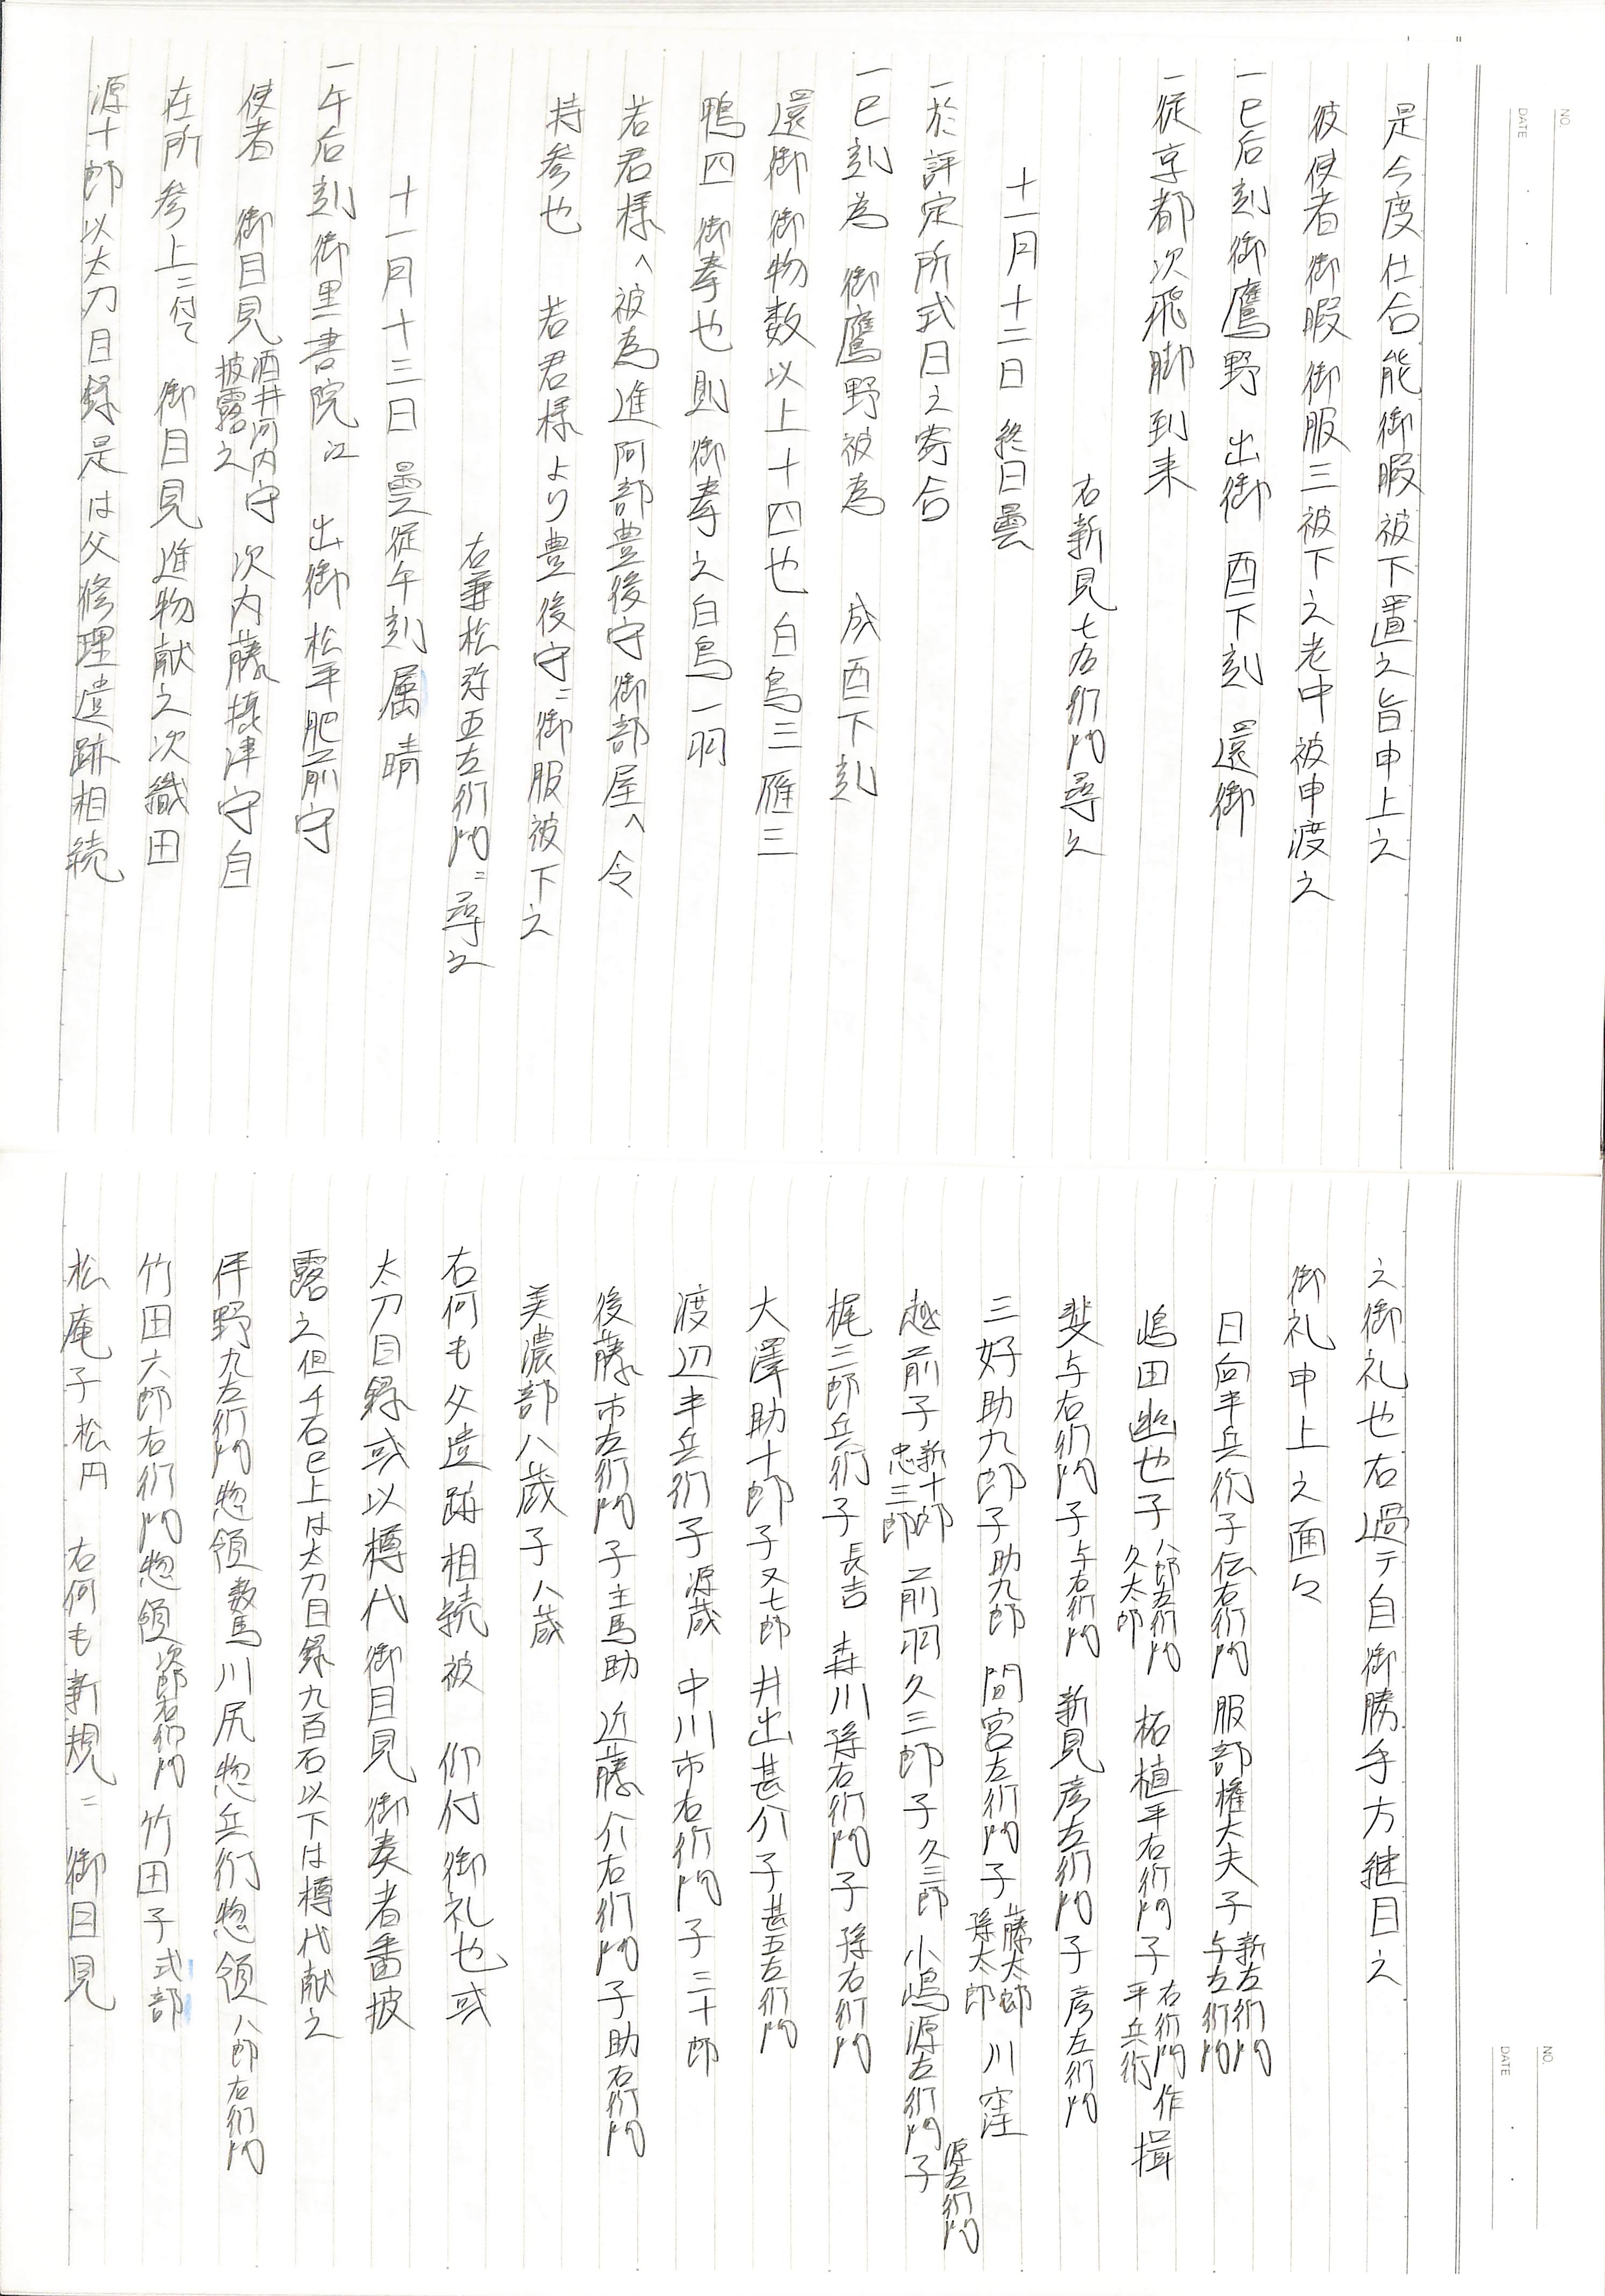 NO.
DATE
是今度仕合能御暇被下置之旨申上之
彼使者御暇御服三被下之老中被申渡之
一巳后刻御鷹野 出御 酉下刻 還御
一従京都次飛脚到来
右新見七右衛門尋之
十一月十二日 終日曇
一於評定所式日之寄合
一巳刻為 御鷹野被為 成酉下刻
還御御物数以上十四也白鳥三雁三
鴨四 御拳也則御拳之白鳥一羽
若君様へ被為進阿部豊後守御部屋へ令
持参也 若君様より豊後守ニ御服被下之
右兼松弥五左衛門ニ尋之
十一月十三日 曇従午刻属晴
一午后刻御黒書院江 出御松平肥前守
使者 御目見酒井河内守披露之 次内藤摂津守自
在所参上ニ付て 御目見進物献之次織田
源十郎以太刀目録是は父修理遺跡相続
NO.
DATE
之御礼也右過テ自御勝手方継目之
御礼申上之面々
日向半兵衛子伝右衛門 服部権大夫子 新左衛門 与左衛門
嶋田幽也子 八郎左衛門 久太郎 柘植平右衛門子 右衛門作 平兵衛 揖
斐与右衛門子与右衛門 新見彦左衛門子彦左衛門
三好助九郎子助九郎 間宮左衛門子 藤太郎 孫太郎 川窪
越前子 新十郎 忠三郎 前羽久三郎子久三郎 小嶋源左衛門子 源左衛門
梶三郎兵衛子長吉 森川孫右衛門子孫右衛門
大澤助十郎子又七郎 井出甚介子甚五左衛門
渡辺半兵衛子源蔵 中川市右衛門子三十郎
後藤市左衛門子主馬助 近藤介右衛門子助右衛門
美濃部八蔵子八蔵
右何も父遺跡相続被 仰付御礼也或
太刀目録或以樽代御目見御奏者番披
露之但千石已上は太刀目録九百石以下は樽代献之
伴野九左衛門惣領数馬川尻惣兵衛惣領八郎右衛門
竹田六郎右衛門惣領次郎右衛門 竹田子式部
松庵子松円 右何も新規ニ 御目見